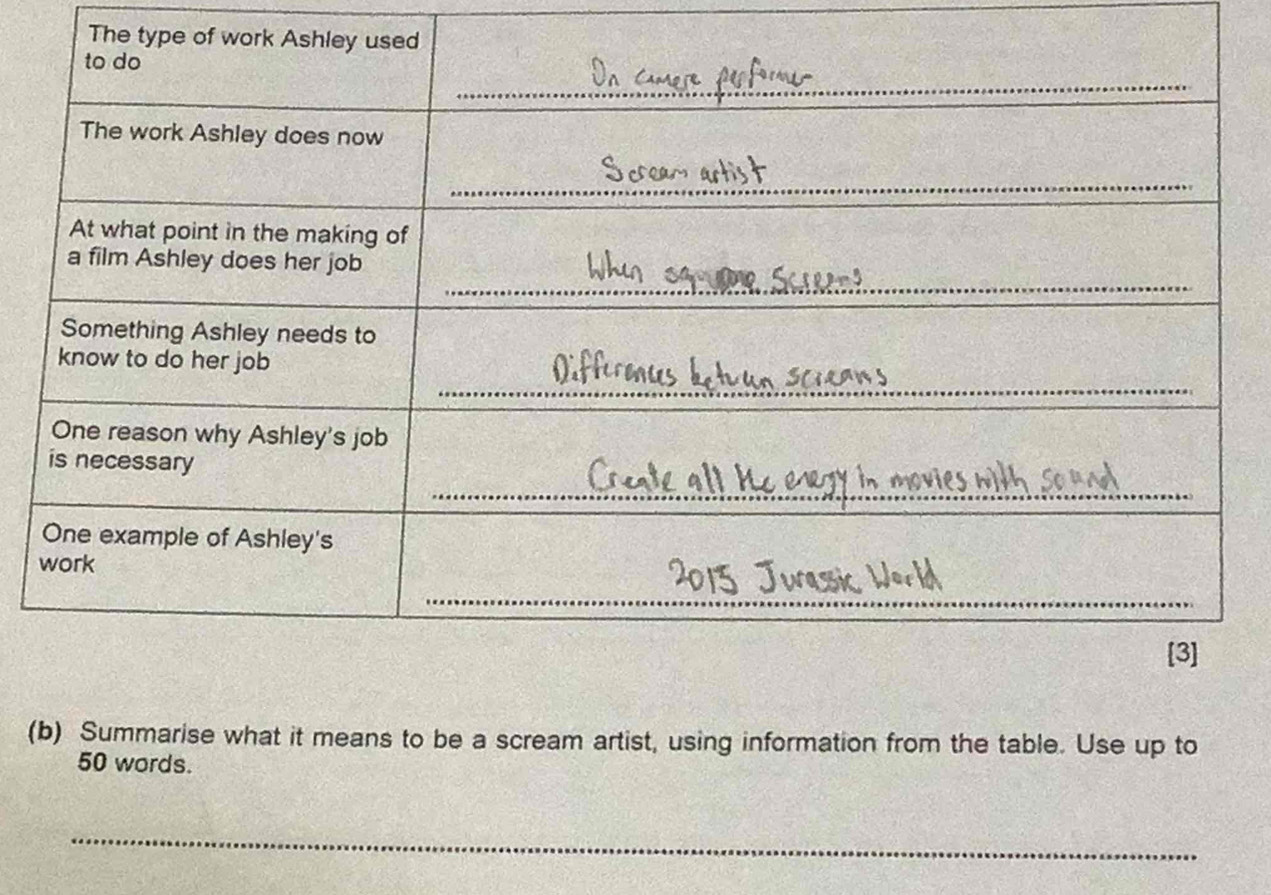 The type of work Ashley used
to do
On camera performer
The work Ashley does now
Scream artist
At what point in the making of
a film Ashley does her job
When screams
Something Ashley needs to
know to do her job
Differences between screams
One reason why Ashley's job
is necessary
Create all the energy in movies with sound
One example of Ashley's
work
2015 Jurassic World
[3]
(b) Summarise what it means to be a scream artist, using information from the table. Use up to
50 words.